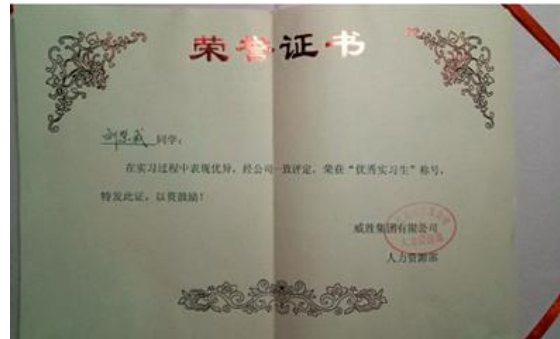 荣誉证书
同学：
在实习过程中表现优异，经公司一致评定，荣获“优秀实习生”称号，
特发此证，以资鼓励！
威胜集团有限公司
人力资源部